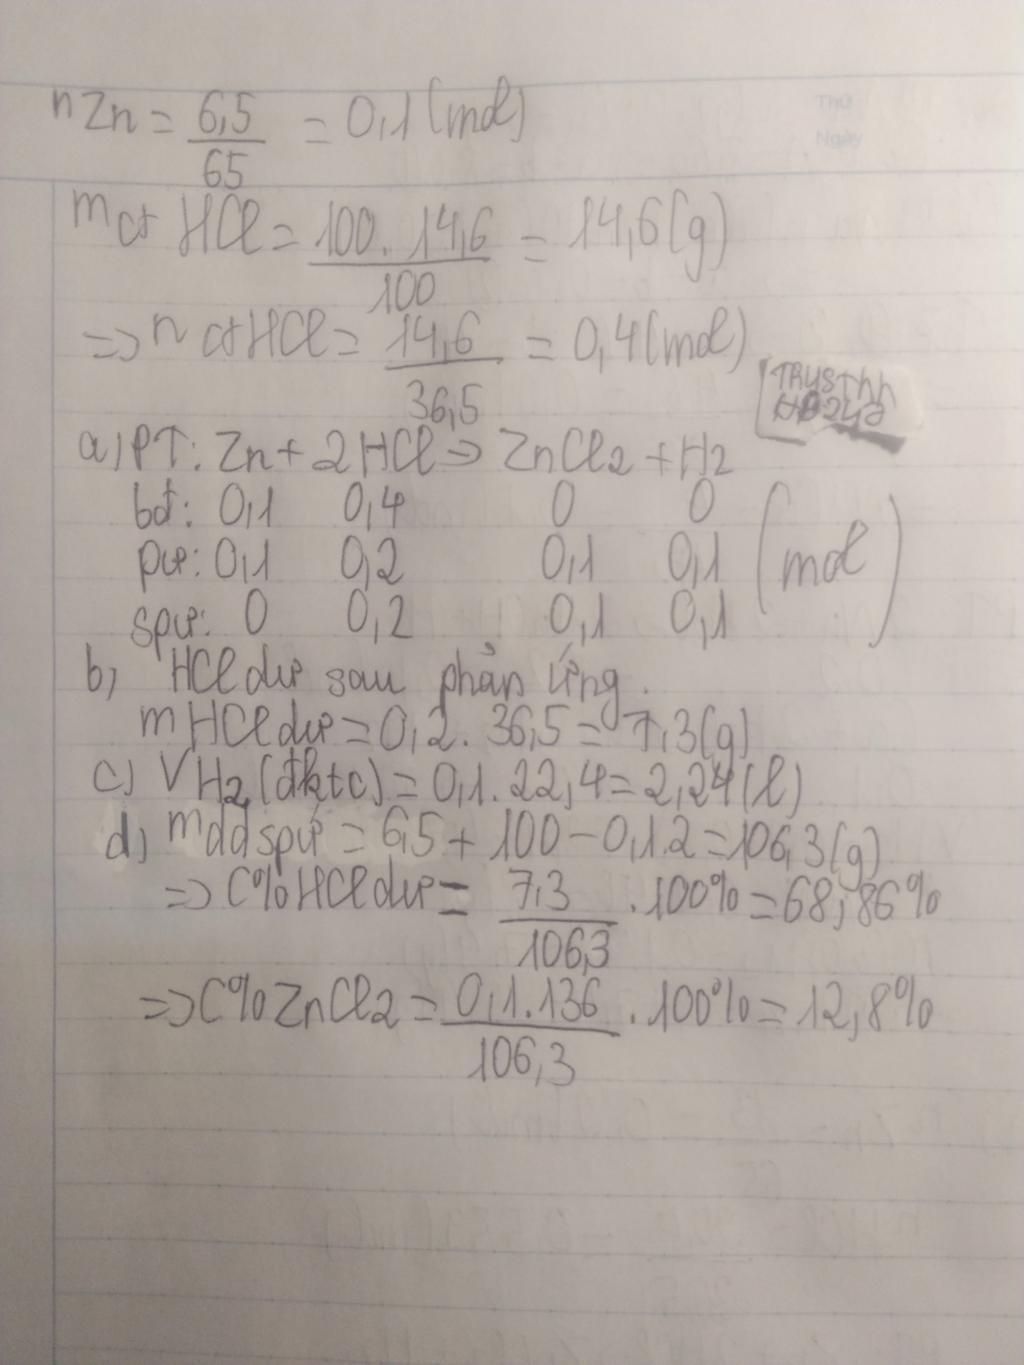 nZn = 6,5/65 = 0,1 (mol)
Thứ
Ngày
mct HCl = 100.14,6/100 = 14,6 (g)
=> n ct HCl = 14,6/36,5 = 0,4 (mol)
a) PT: Zn + 2HCl => ZnCl2 + H2
bđ: 0,1 0,4 0 0
pư: 0,1 0,2 0,1 0,1 (mol)
spư: 0 0,2 0,1 0,1
b) HCl dư sau phản ứng.
mHCl dư = 0,2. 36,5 = 7,3 (g)
c) VH2 (đktc) = 0,1.22,4 = 2,24 (l)
d) mdd spứ = 6,5 + 100 - 0,1.2 = 106,3 (g)
=> C% HCl dư = 7,3/106,3 .100% = 68,86%
=> C% ZnCl2 = 0,1.136/106,3 .100% = 12,8%